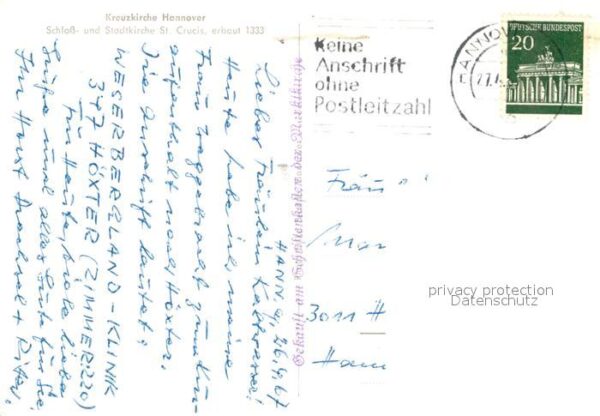 Kreuzkirche Hannover
Schloß- und Stadtkirche St. Crucis, erbaut 1333
HANN., 26.4.67
Liebes Fräulein
Heute habe ich meine
Frau zum Kur-
aufenthalt nach Höxter.
Die Anschrift lautet:
WESERBERGLAND-KLINIK
347 HÖXTER (ZIMMER 220)
Für Heute, viele liebe
Grüße und alles Gute für Sie
Ihr Horst
Gekauft am Schriftenkasten der Marktkirche
Keine
Anschrift
ohne
Postleitzahl
HANNOV
27.4
DEUTSCHE BUNDESPOST
20
Fräu
3011 H
Han
privacy protection
Datenschutz